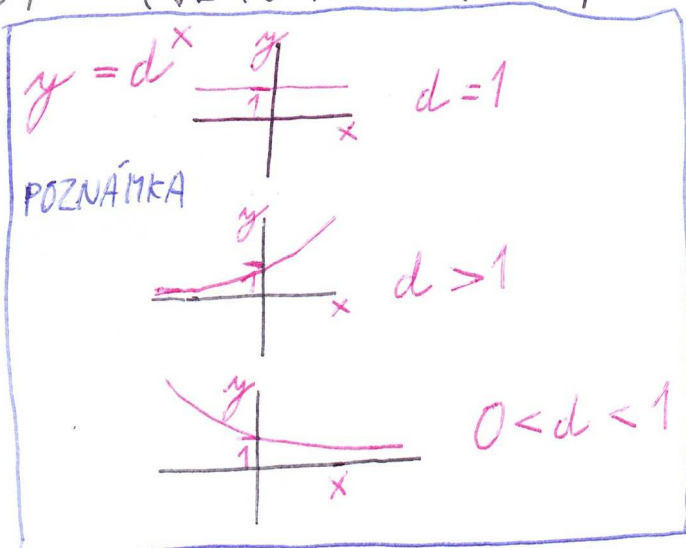 y = d^x
y
1
x
d = 1
POZNÁMKA
y
1
x
d > 1
y
1
x
0 < d < 1